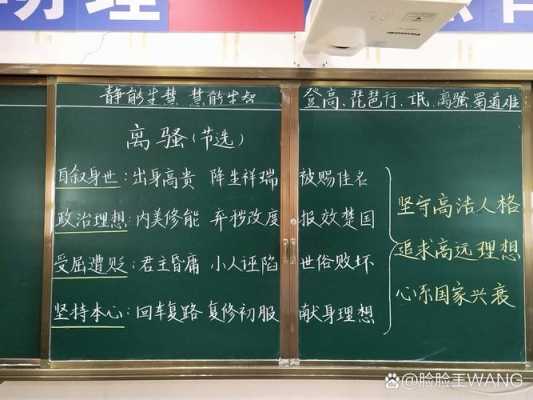 静能生慧 慧能生智
登高、琵琶行、氓、离骚蜀道难
离骚(节选)
自叙身世：出身高贵 降生祥瑞 被赐佳名
政治理想：内美修能 弃秽改度 报效楚国
受屈遭贬：君主昏庸 小人诬陷 世俗败坏
坚持本心：回车复路 复修初服 献身理想
坚守高洁人格
追求高远理想
心系国家兴衰
@脸脸王WANG